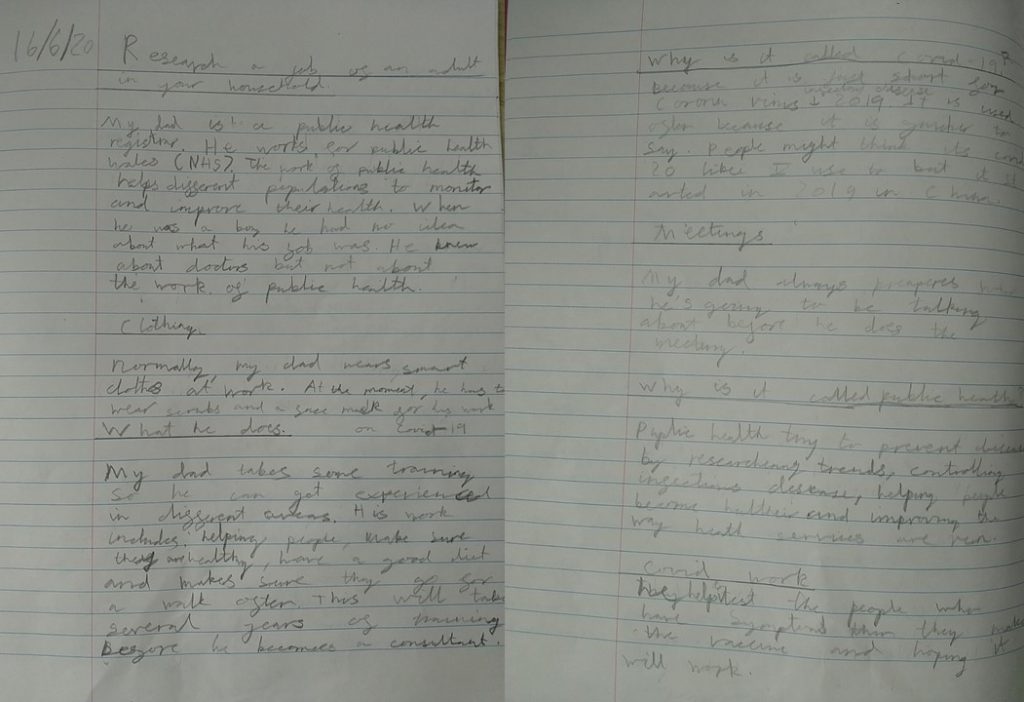 16/6/20
Research a job of an adult
in your household.
My dad is a public health
registrar. He works for public health
wales (NHS). The work of public health
helps different populations to monitor
and improve their health. When
he was a boy he had no idea
about what his job was. He knew
about doctors but not about
the work of public health.
Clothing.
Normally, my dad wears smart
clothes at work. At the moment, he has to
wear scrubs and a face mask for his work
on Covid 19
What he does.
My dad takes some training
so he can get experienced
in different areas. His work
includes, helping people, make sure
they are healthy, have a good diet
and makes sure they go for
a walk often. This will take
several years of training
before he becomes a consultant.
Why is it called Covid-19?
because it is just short for
infectious disease
Corona virus 2019. It is used
often because it is quicker to
say. People might think its
20 like I use to but it
arted in 2019 in China.
Meetings
My dad always preapres
he's going to be talking
about before he does the
meeting.
Why is it called public health
Puplic health try to prevent
by researching trends, controlling
infectious disease, helping people
become heltheir and improving the
way healt services are run.
Covid work
help test the people when
have symptens then they
the vaccine and hoping it
will work.